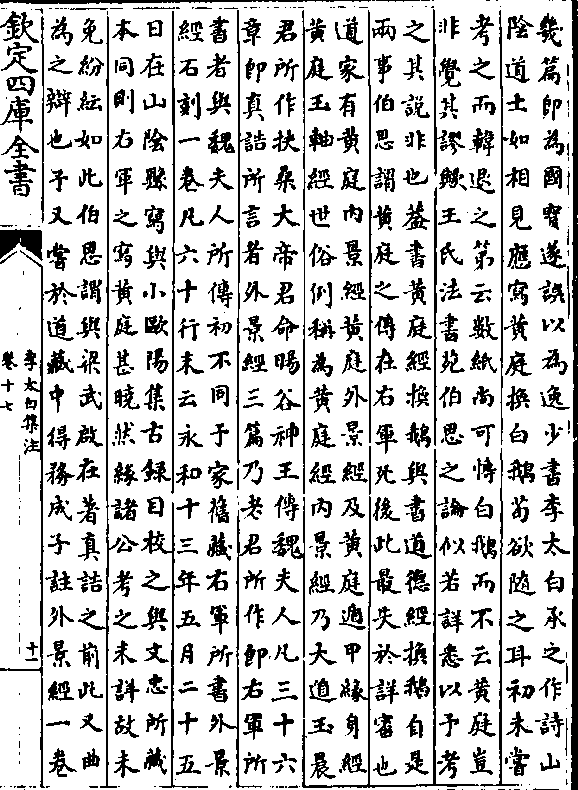 幾篇即為國寶遂誤以為逸少書李太白承之作詩山
陰道士如相見應寫黃庭換白鵝茍欲隨之耳初未嘗
考之而韓退之第云數紙尚可愽白鵝而不云黃庭豈
非覺其謬歟王氏法書苑伯思之論似若詳悉以予考
之其說非也蓋書黃庭經換鵝與書道德經換鵝自是
兩事伯思謂黃庭之傳在右軍死後此最失於詳審也
道家有黃庭內景經黃庭外景經及黃庭遁甲緣身經
黃庭玉軸經世俗例稱為黃庭經內景經乃大道玉晨
君所作扶桑大帝君命暘谷神王傳魏夫人凡三十六
章即真誥所言者外景經三篇乃老君所作即右軍所
書者與魏夫人所傳初不同予家舊藏右軍所書外景
經石刻一卷凡六十行末云永和十三年五月二十五
日在山陰縣寫與小歐陽集古錄目校之與文忠所藏
本同則右軍之寫黃庭甚曉然緣諸公考之未詳故未
免紛紜如此伯思謂與梁武啟在著真誥之前此又曲
為之辯也予又嘗於道藏中得務成子註外景經一卷
欽定四庫全書
李太白集注
卷十七
十一